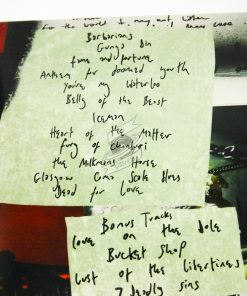 for the world to
Barbarians
Gunga Din
fame and fortune
Anthem for doomed youth
You're my Waterloo
Belly of the Beast
Iceman
Heart of the Matter
fury of chonburi
the Milkmans Horse
Glasgow Coma Scale Blues
Dead for Love
Bonus Tracks
love on the dole
Bucket Shop
Lust of the Libertines
7 deadly sins